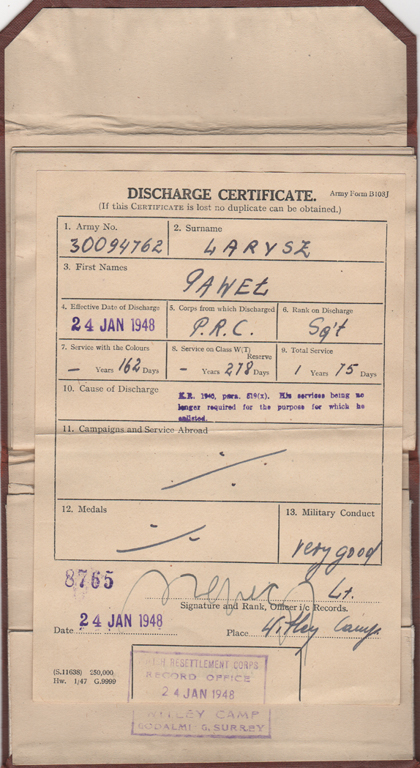 DISCHARGE CERTIFICATE. Army Form B108J
(If this CERTIFICATE is lost no duplicate can be obtained.)
1. Army No. 2. Surname
30094762 LARYSZ
3. First Names
PAWEŁ
4. Effective Date of Discharge 5. Corps from which Discharged 6. Rank on Discharge
24 JAN 1948 P.R.C. Sg't
7. Service with the Colours 8. Service on Class W(T) Reserve 9. Total Service
— Years 162 Days — Years 278 Days 1 Years 75 Days
10. Cause of Discharge K.R. 1940, para. 519(x). His services being no
longer required for the purpose for which he
enlisted.
11. Campaigns and Service Abroad
12. Medals 13. Military Conduct
very good
8765
Lt.
Signature and Rank, Officer i/c Records.
24 JAN 1948
Date Place Witley Camp
(S.11638) 250,000
Hw. 1/47 G.9999
RESETTLEMENT CORPS
RECORD OFFICE
24 JAN 1948
WITLEY CAMP
GODALMI G. SURREY